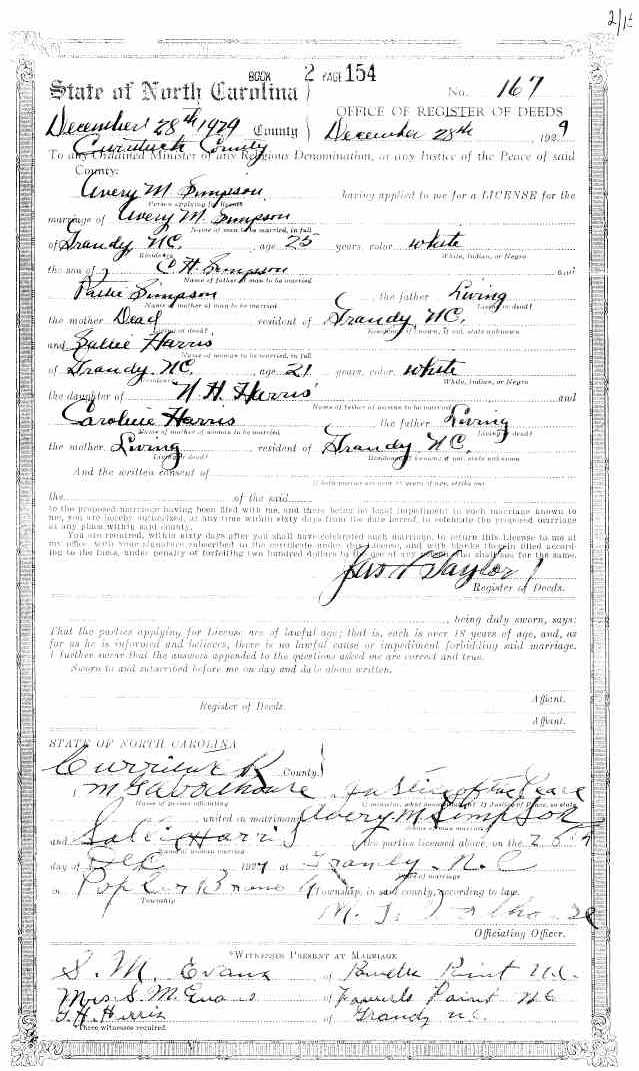 2/15
BOOK 2 PAGE 154
State of North Carolina
No. 167
OFFICE OF REGISTER OF DEEDS
December 28th 1929 County
December 28th 1929
Currituck County
To any Ordained Minister of any Religious Denomination, or any Justice of the Peace of said
County:
Avery M. Simpson having applied to me for a LICENSE for the
Person applying for license
marriage of Avery M. Simpson
Name of man to be married, in full
of Grandy, N.C. age 25 years color white
Residence
White, Indian, or Negro
the son of C. H. Simpson and
Name of father of man to be married
Simpson the father Living
Name of mother of man to be married
Living or dead?
the mother Dead resident of Grandy, N.C.
Living or dead?
Residence, if known, if not, state unknown
and Sallie Harris
Name of woman to be married, in full
of Grandy, N.C. age 21 years, color white
Residence
White, Indian, or Negro
the daughter of H. Harris and
Name of father of woman to be married
Caroline Harris the father Living
Name of mother of woman to be married
Living or dead?
the mother Living resident of Grandy, N.C.
Living or dead?
Residence, if known, if not, state unknown
And the written consent of
If both parties are over 18 years of age, strike out
the of the said
to the proposed marriage having been filed with me, and there being no legal impediment to such marriage known to
me, you are hereby authorized, at any time within sixty days from the date hereof, to celebrate the proposed marriage
at any place within said county.
You are required, within sixty days after you shall have celebrated such marriage, to return this License to me at
my office with your signature subscribed to the certificate under this License, and with blanks therein filled accord-
ing to the facts, under penalty of forfeiting two hundred dollars to the use of any person who shall sue for the same.
Taylor
Register of Deeds.
being duly sworn, says:
That the parties applying for License are of lawful age; that is, each is over 18 years of age, and, so
far as he is informed and believes, there is no lawful cause or impediment forbidding said marriage.
I further swear that the answers appended to the questions asked me are correct and true.
Sworn to and subscribed before me on day and date above written.
Affiant.
Register of Deeds.
Affiant.
STATE OF NORTH CAROLINA
Currituck County.
Justice of the Peace
Name of person officiating
united in matrimony Avery M Simpson
Name of man married
and Harris the parties licensed above, on the
Name of woman married
day of Dec at Grandy, N.C
Place of marriage
in Poplar Branch Township, in said county, according to law.
Township
Officiating Officer.
*WITNESSES PRESENT AT MARRIAGE
S. M. Evans of Point N.C.
Mrs. S. M. Evans of Point N.C
Harris of Grandy N.C.
*Three witnesses required.